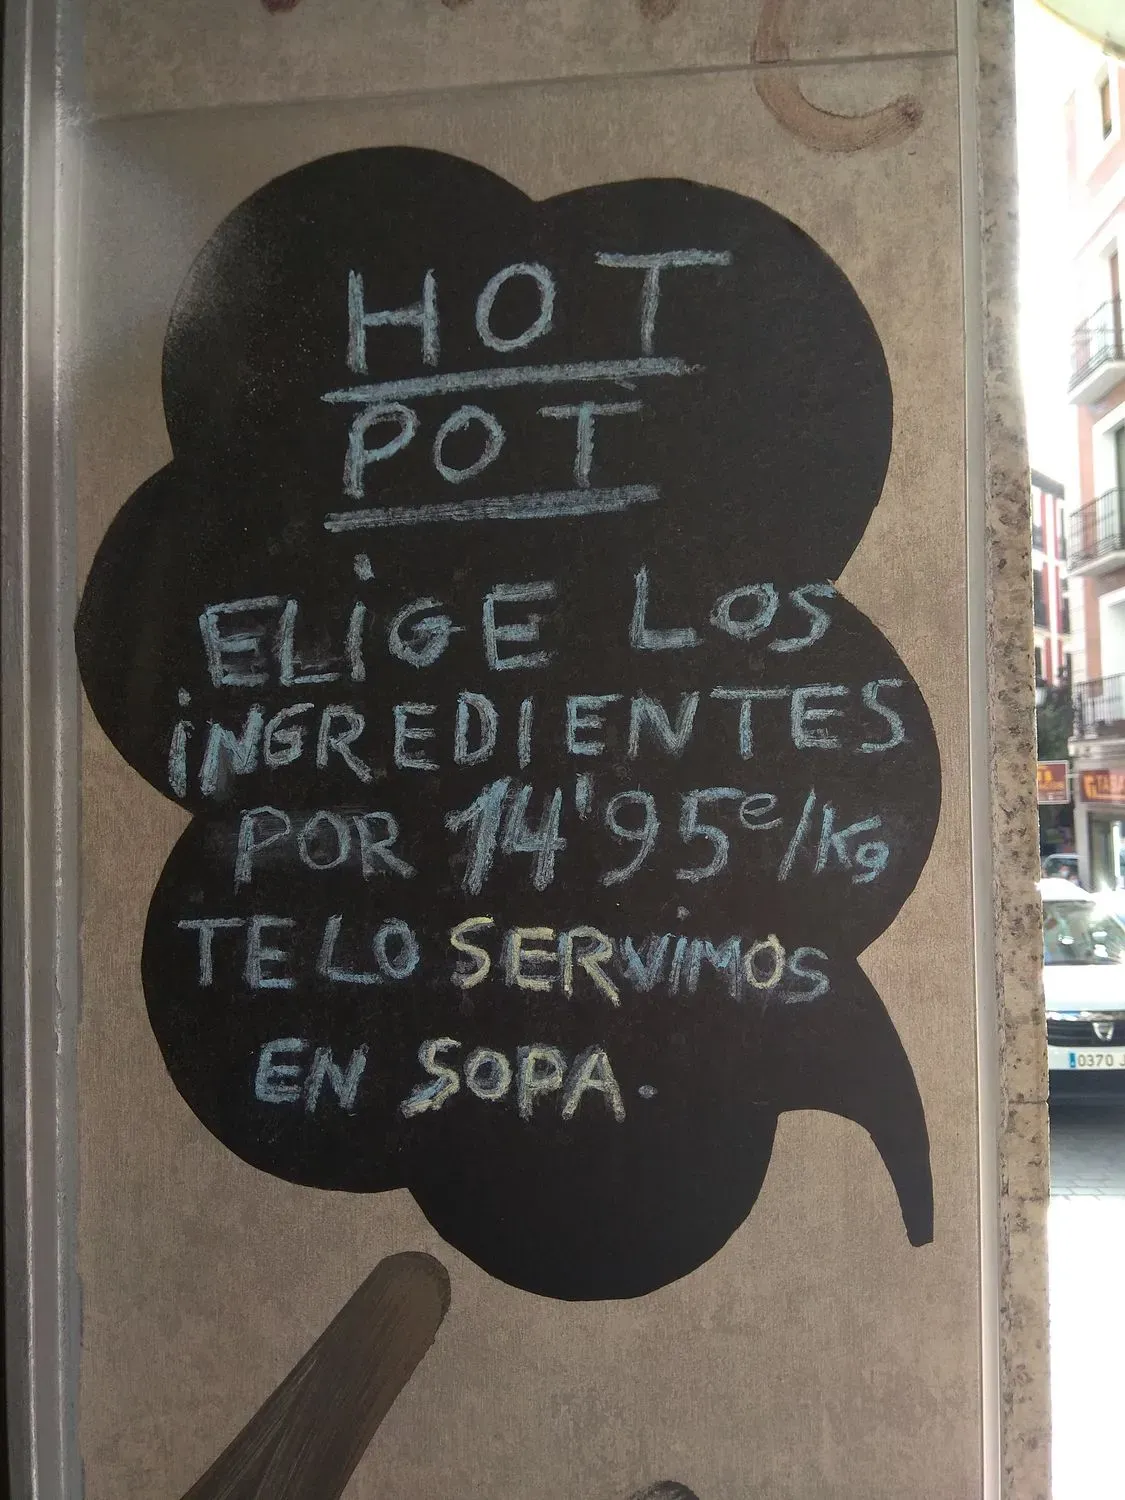 HOT
POT
ELIGE LOS
INGREDIENTES
POR 14'95e/Kg
TE LO SERVIMOS
EN SOPA.
0370 J